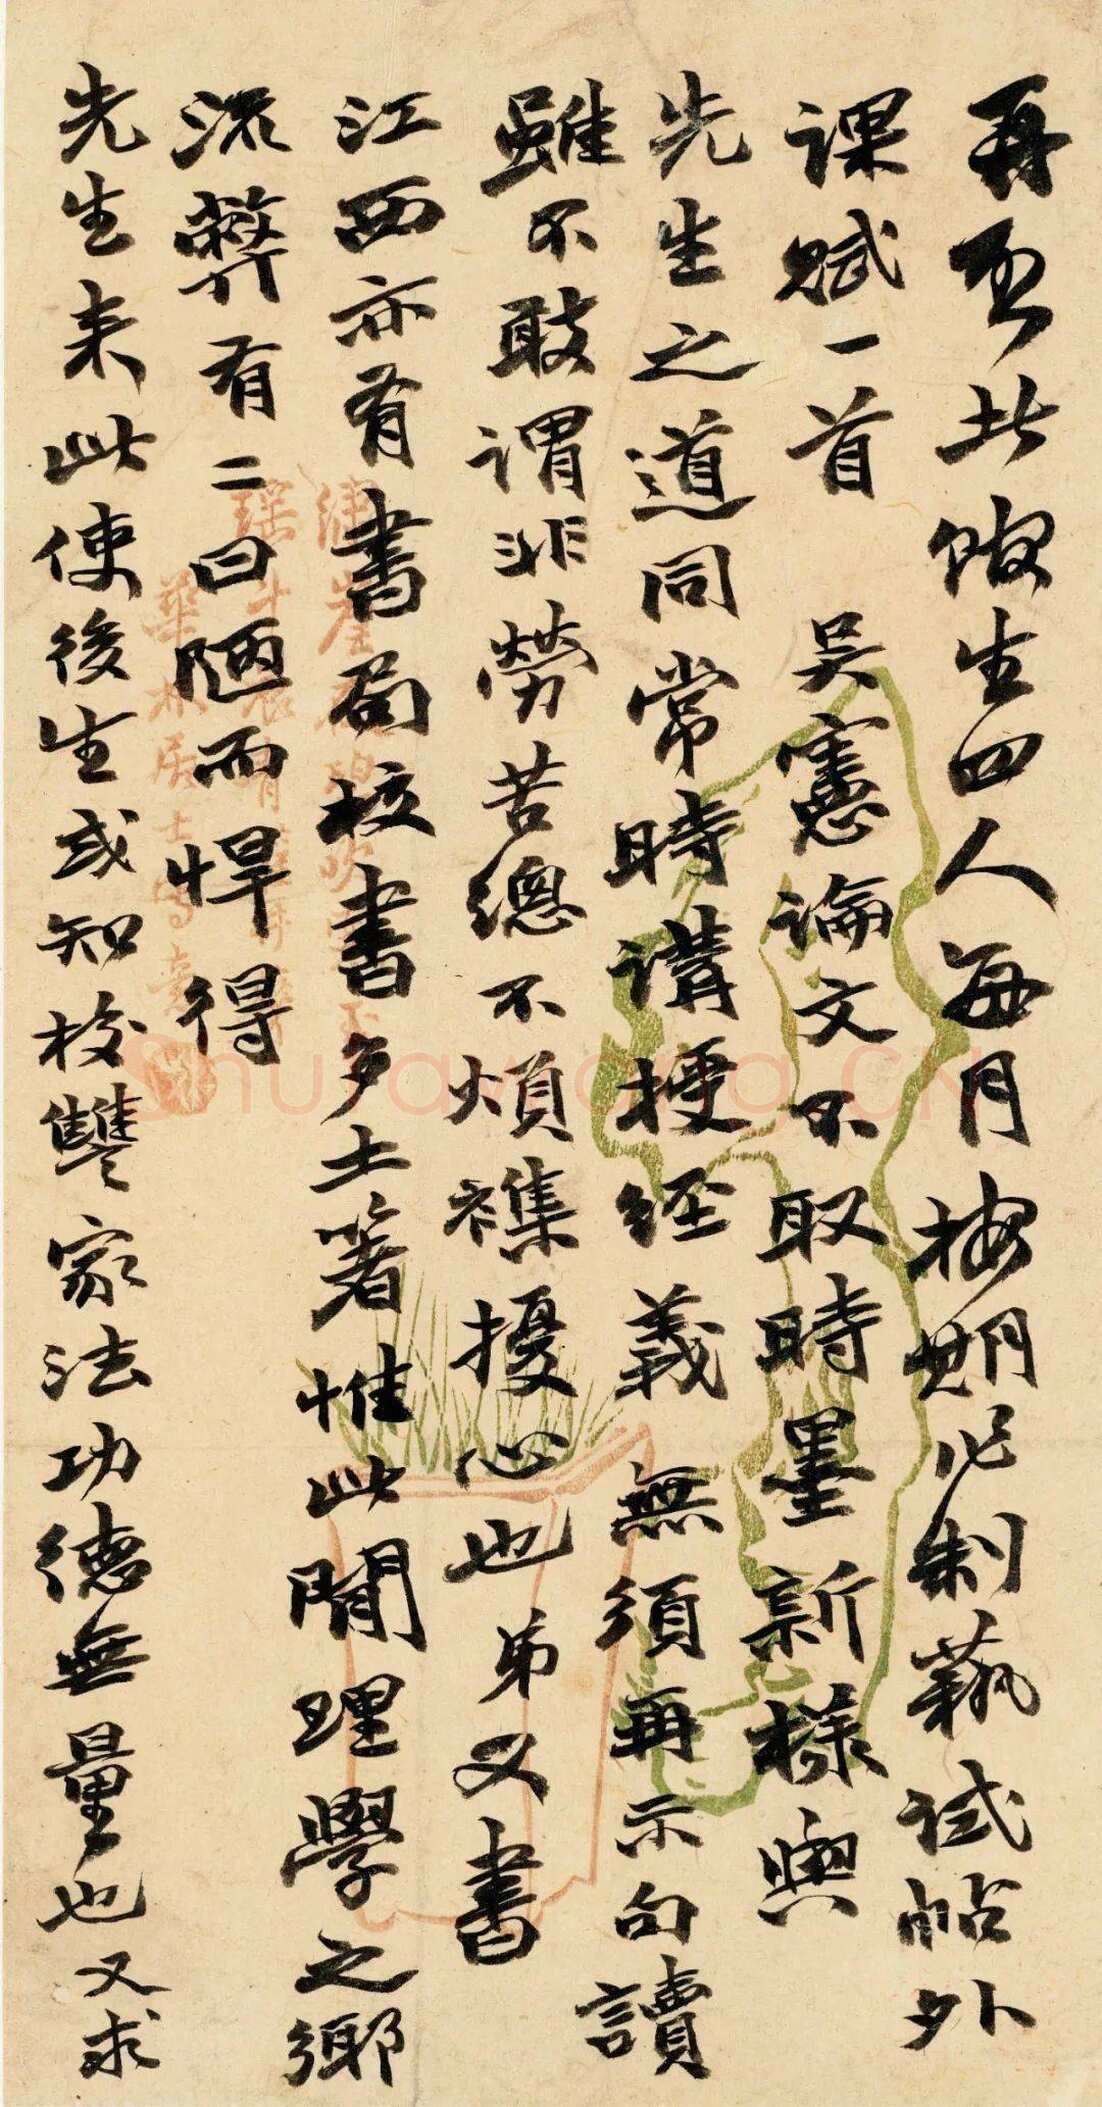 再啟此饌生四人每月按期作制藝試帖外
課賦一首 吳憲論文不取時墨新樣與
先生之道同常時講授經義無須再示句讀
雖不敢謂非勞苦總不煩襍擾心也弟又書
江西亦有書局校書多土著惟此閒理學之鄉
流弊有二曰陋而悍得
先生来此使後生或知校讐家法功德無量也又求